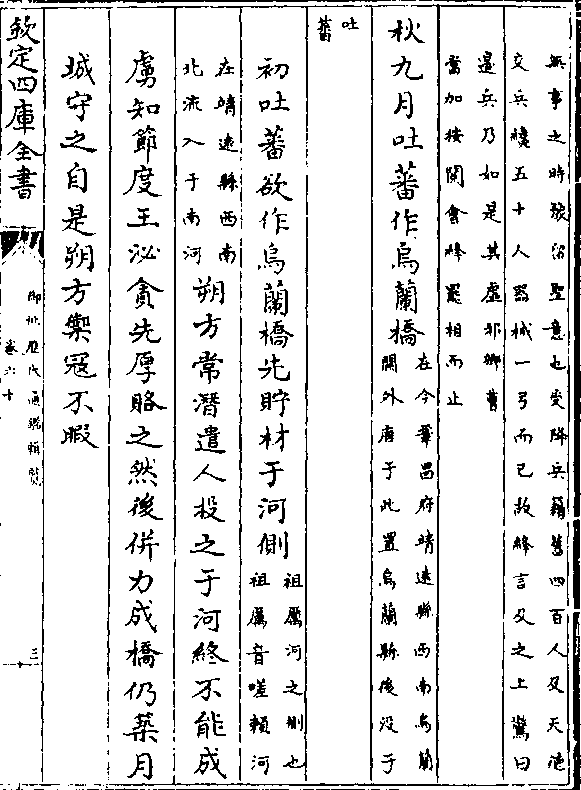 無事之時發沿聖意也受降兵籍舊四百人及天德
交兵纔五十人器械一弓而已故絳言及之上驚曰
邊兵乃如是其虛邪卿曹
當加按閱會絳罷相而止
秋九月吐蕃作烏蘭橋在今鞏昌府靖遠縣西南烏蘭
關外唐于此置烏蘭縣後没于
吐
蕃
初吐蕃欲作烏蘭橋先貯材于河側祖厲河之側也
祖厲音嗟賴河
在靖遠縣西南
北流入于南河朔方常潛遣人投之于河終不能成
虜知節度王泌貪先厚賂之然後併力成橋仍築月
城守之自是朔方禦冦不暇
欽定四庫全書
御批歷代通鑑輯覽
卷六十
三